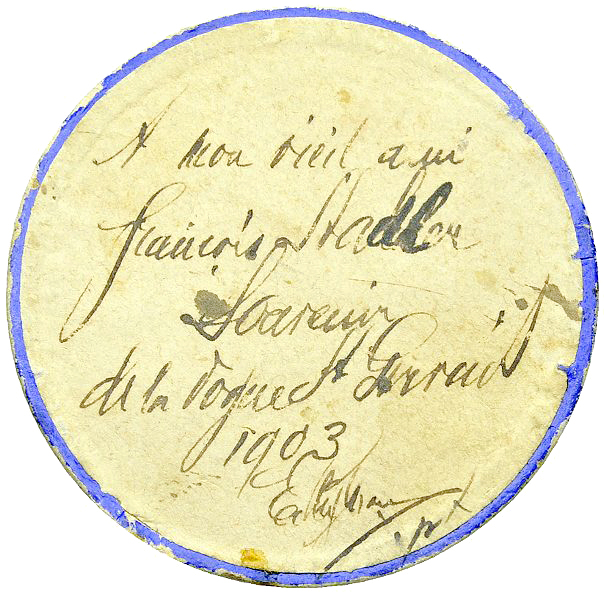 A mon vieil ami
François Stadler
Souvenir
de la Vogue St Gervais
1903